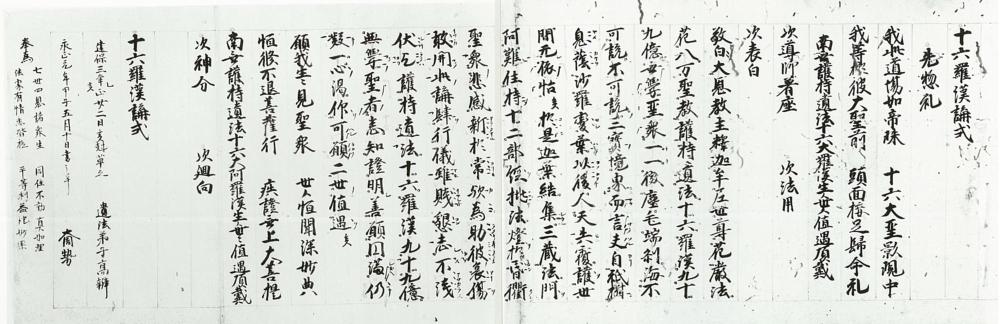 十六羅漢講式
先惣礼
我此道場如帝珠 十六大聖影現中
我等於彼大聖前 頭面接足歸命礼
南無護持遺法十六大羅漢生々世々値遇頂戴
次導師着座 次法用
次表白
敬白大恩教主釋迦牟尼世尊花嚴法
花八万聖教護持遺法十六羅漢九十
九億無學聖衆一一微塵毛端刹海不
可説不可説三寶境界而言夫自祇樹
息蔭沙羅変葉以後人天共癈護世
間尤依怙於是迦葉結集三蔵法門
阿難住持十二部経挑法燈於昏衢
聖衆悲感新於常欣為助彼哀傷
敢開此講肆行儀雖賤懇志不浅
伏乞護持遺法十六羅漢九十九億
無學聖者悉知證明善願因論仍
歎一心渇仰可願二世値遇
願我生々見聖衆 世々恒聞深妙典
恒修不退菩薩行 疾證無上大菩提
南無護持遺法十六大阿羅漢生々世々値遇頂戴
次神分 次廻向
十六羅漢講式
建保三年正廿一日 遺法弟子高辨
永正元年甲子五月十日書之
七世四恩諸衆生 同住不動真如理
奉為 法界有情 平等利益